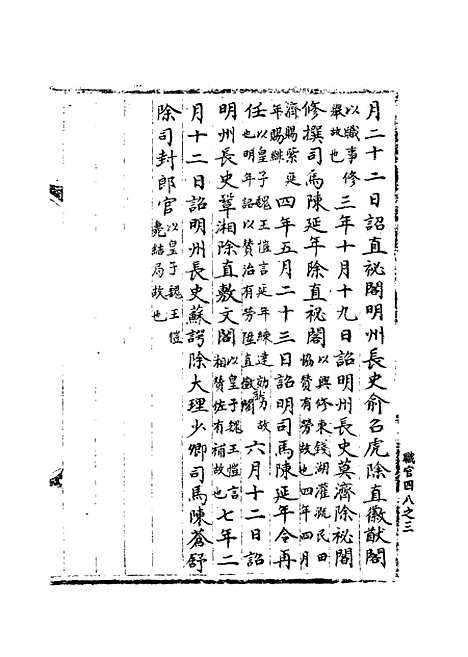 月二十二日詔直祕閣明州長史俞召虎除直徽猷閣
以職事修
舉故也
三年十月十九日詔明州長史莫濟除祕閣
修撰司馬陳延年除直祕閣
以興修東錢湖灌溉民田
協贊有勞故也四年四月
濟賜紫延
年賜緋
四年五月二十三日詔明司馬陳延年令再
任
以皇子魏王愷言延年練達勤力故
也明年詔以贊治有勞陞直徽閣
六月十二日詔
明州長史韋湘除直敷文閣
以皇子魏王愷言
相贊佐有補故也
七年二
月十二日詔明州長史蘇諤除大理少卿司馬陳蒼舒
除司封郎官
以皇子魏王愷
薨結局故也
職官四八之三